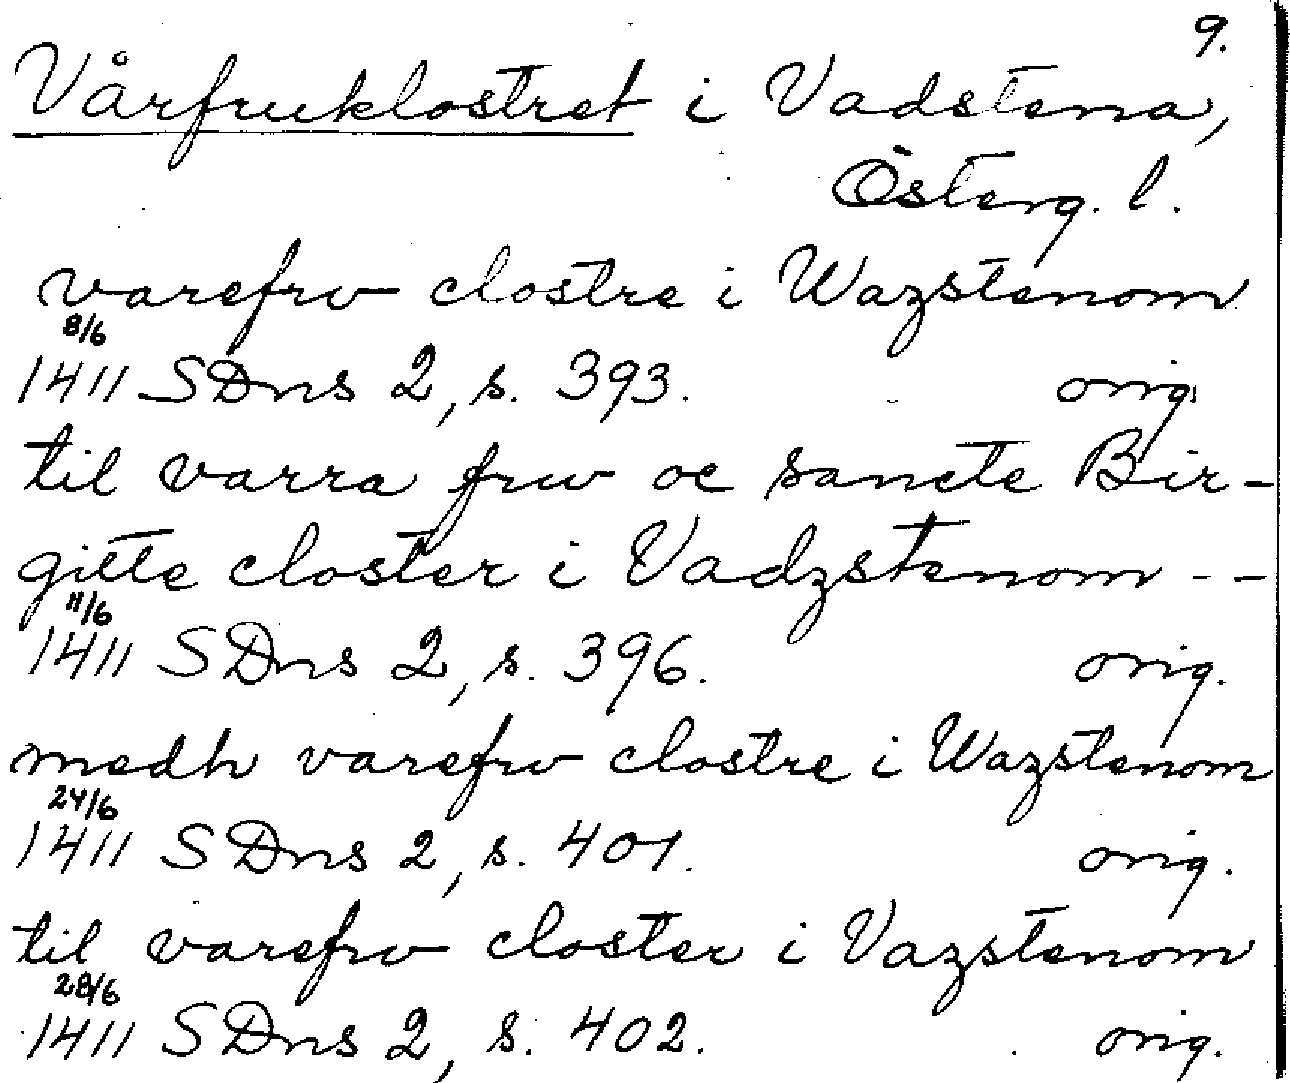 9.
Vårfruklostret i Vadstena,
Österg. l.
varefrv clostre i Wazstenom
8/6
1411 SDns 2, s. 393. orig.
til varra frw oc sancte Bir-
gitte closter i Vadzstenom --
11/6
1411 SDns 2, s. 396. orig.
medh varefrv clostre i Wazstenom
24/6
1411 SDns 2, s. 401. orig.
til varefrv closter i Vazstenom
28/6
1411 SDns 2, s. 402. orig.